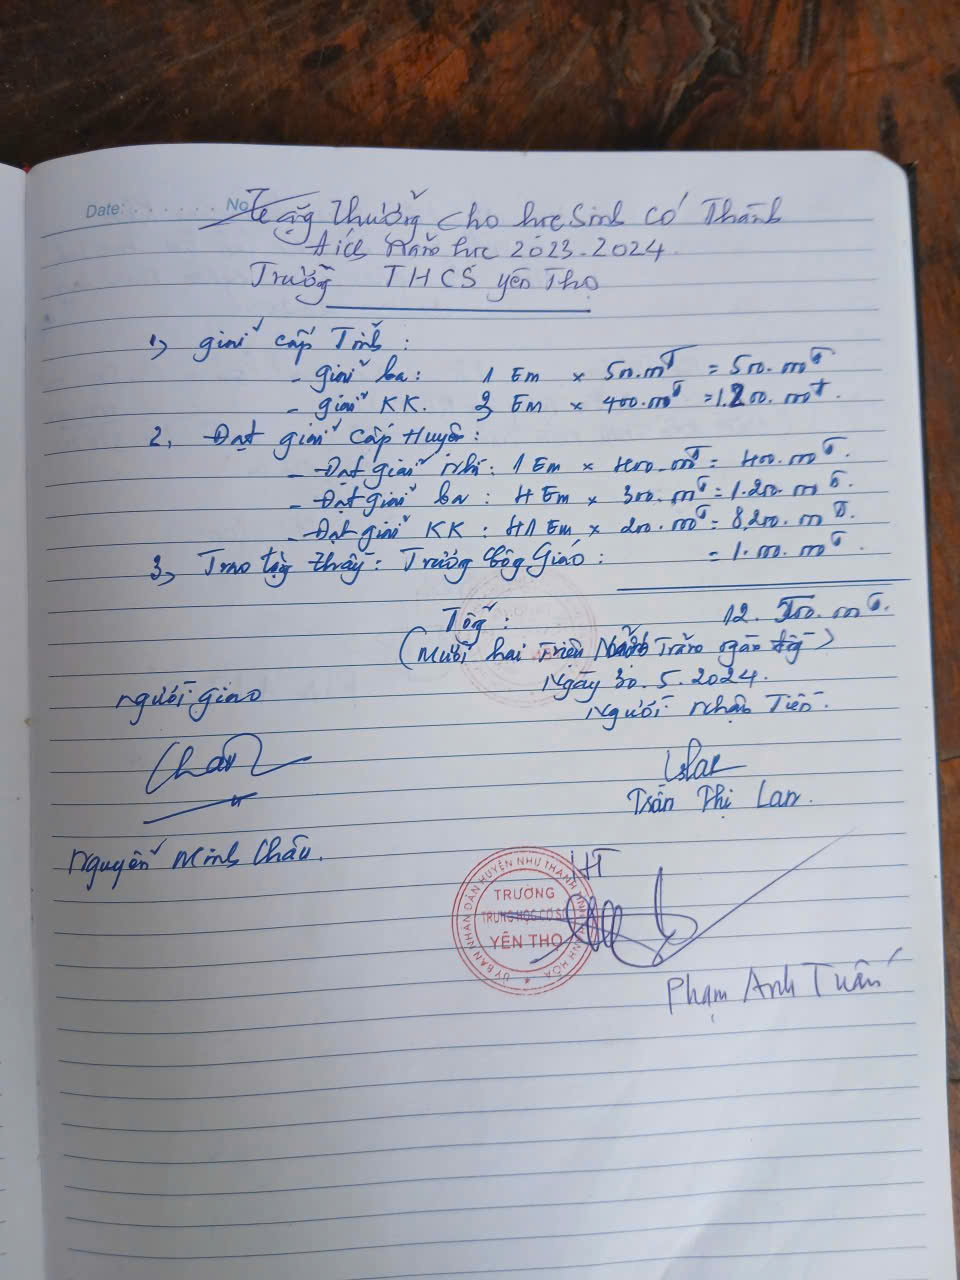 Date: . . . . . . . No
Tặng Thưởng cho học sinh có Thành
tích Năm học 2023-2024.
Trường THCS Yên Thọ
1, giải cấp Tỉnh:
- giải ba: 1 Em × 500.000đ = 500.000đ
- giải KK. 3 Em × 400.000đ = 1.200.000đ.
2, Đạt giải cấp Huyện:
- Đạt giải nhì: 1 Em × 400.000đ = 400.000đ.
- Đạt giải ba: 4 Em × 300.000đ = 1.200.000đ.
- Đạt giải KK: 41 Em × 200.000đ = 8.200.000đ.
3, Trao tặng thầy: Trương Công Giáo: = 1.000.000đ.
Tổng: 12.500.000đ.
(Mười hai Triệu Năm Trăm ngàn đồng)
Ngày 30.5.2024.
người giao
Người nhận Tiền.
Trần Thị Lan.
Nguyễn Minh Châu.
HT
ỦY BAN NHÂN DÂN HUYỆN NHƯ THANH TỈNH THANH HÓA
TRƯỜNG
TRUNG HỌC CƠ SỞ
YÊN THỌ
Phạm Anh Tuấn